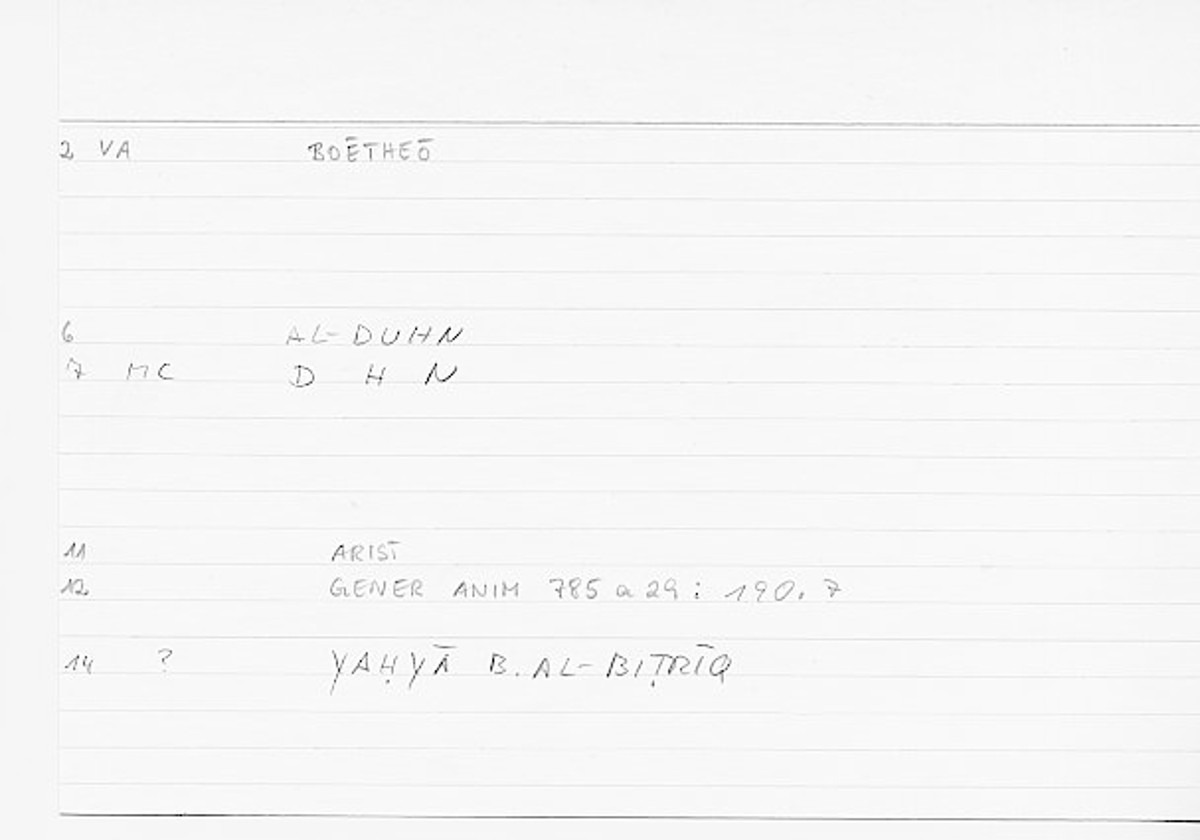 2 VA BOĒTHEŌ
6 AL-DUHN
7 MC D H N
11 ARIST
12 GENER ANIM 785 a 29 : 190. 7
14 ? YAḤYĀ B. AL-BIṬRĪQ